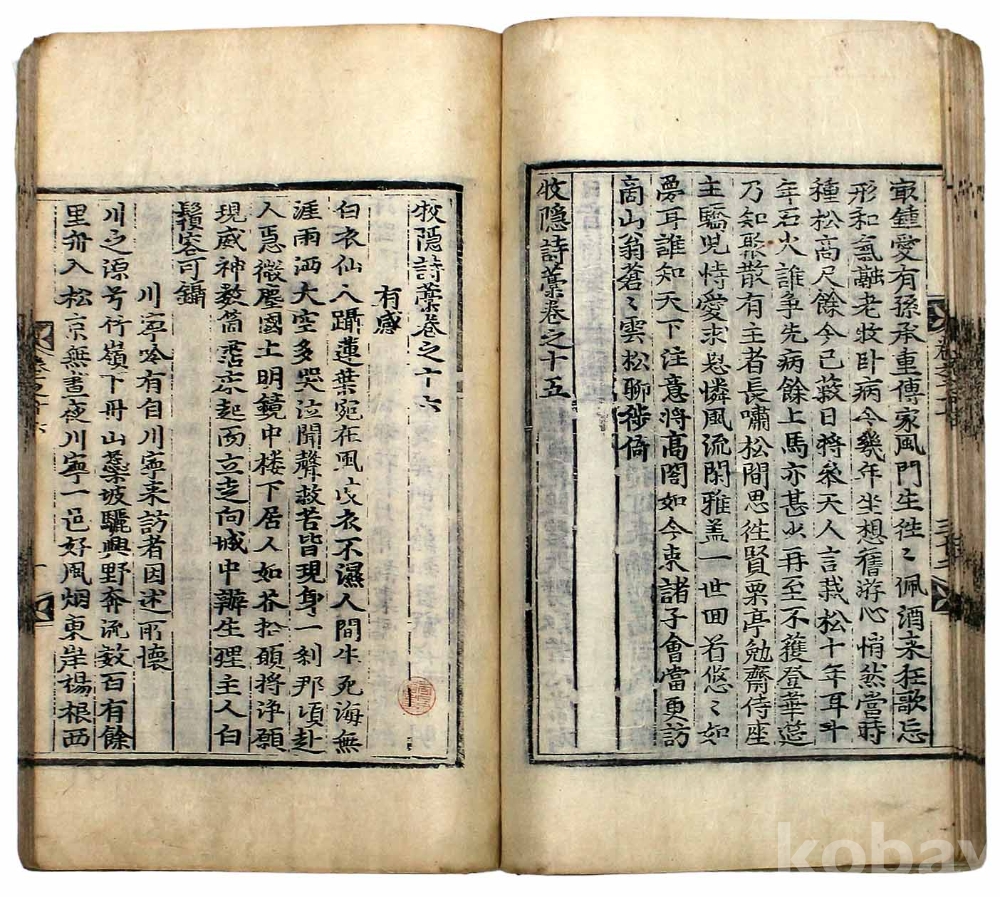 最鍾愛有孫承重傳家風門生徃〻佩酒来狂歌忘
形和氣融老牧卧病今幾年坐想舊游心悄然嘗時
種松高尺餘今已 日將叅天人言 松十年耳斗
年石火誰争先病餘上馬亦甚 再至不獲登華筵
乃知聚散有主者長嘯松間思徃賢栗亭勉齋侍座
主驕児恃愛求 憐風流閑雅盖一世回首悠〻如
夢耳誰知天下注意將髙閣如今柬諸子會當更訪
高山翁蒼〻雲松聊徙倚
牧隱詩藁卷之十五
牧隱詩藁卷之十六
有感
白衣仙人躡蓮葉宛在風 衣不濕人間生死海無
涯雨洒大空多哭泣聞聲救苦皆現身一刹那頃赴
人 微塵國土明鏡中楼下居人如芥拾願將浄願
現威神 起而立走向城中辦生理主人白
鬚容可鑷
川寧吟有自川寧来訪者因述所懷
川之源兮竹嶺下丹山 坡驪興野奔流數百有餘
里舟入松京無晝夜川寧一邑好風烟東岸楊根西
kobay